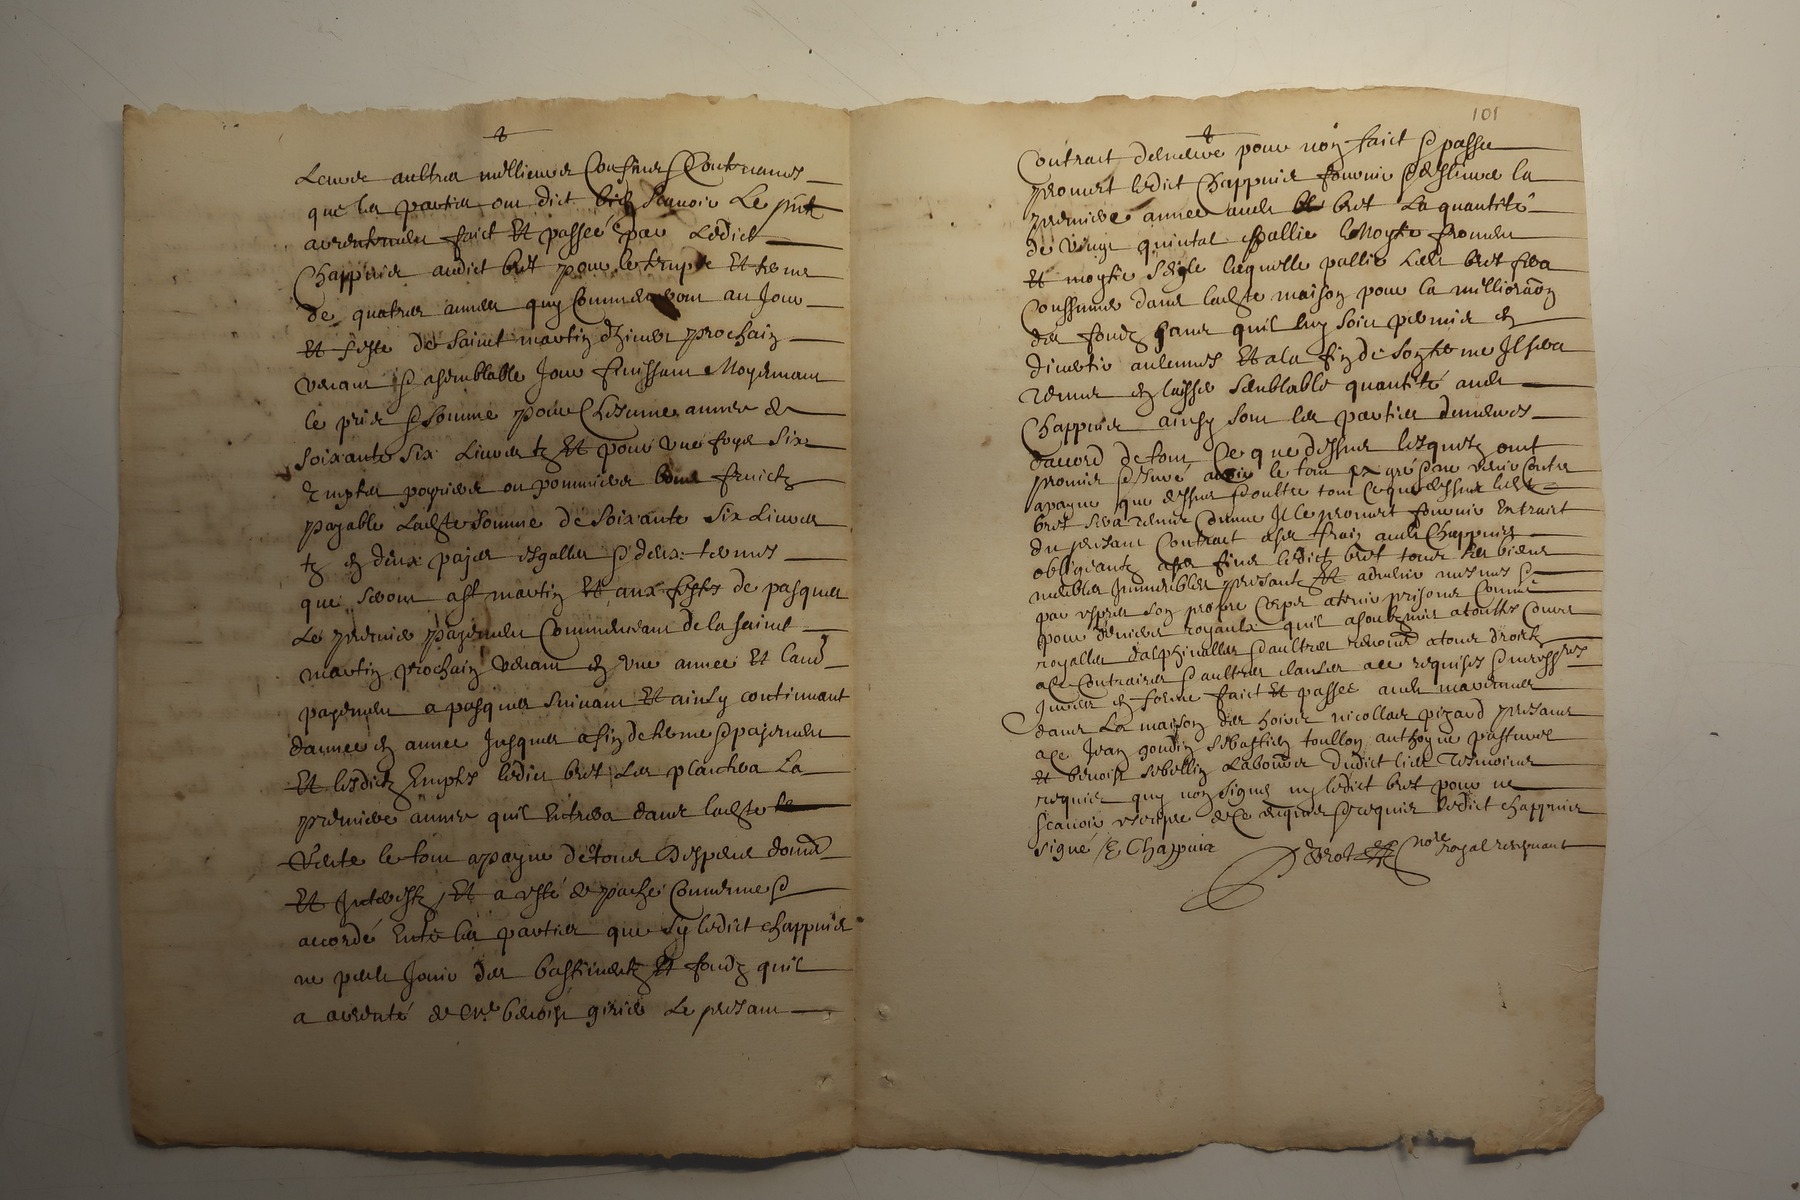 Leurs aultres meilleures confines Contenances
que les parties ont dict bien scavoir Le pnt
arrentement faict Et passé par Ledict
Chappuis audict bret pour le temps Et terme
de quatres annees quy Commenceront au Jour
Et feste de saint martin dhiver prochain
venant & a semblable Jour finissant Moyenant
le pris & somme pour Chescune annee de
soixante six Livres tz Et pour une foys six
Emptes poyriers ou pommiers bons fruictz
payable Ladte somme de soixante six Livres
tz en deux payes esgalles & deux termes
que seront a st martin Et aux festes de pasques
Le premier payement Commencant de la saint
martin prochain venant en une annee Et laud
payement a pasques suivant Et ainsy continuant
dannee en annee Jusques a fin de terme & payement
Et lesdictz Emptes ledict bret Les plantera La
premiere annee quil Entrera dans ladte
Verte le tout a payne de tous despens dom
Et Interestz Et a esté de pache Convenue &
accordé Entre les parties que sy ledict chappuis
ne peult Jouir des bastimentz Et fondz quil
a arrenté de Mre benoist girier Le presant
101
Contract demeure pour non faict & passe
promet ledict Chappuis fournir & deslivrer la
premiere annee aud bret La quantité
de vingt quintal pallie Moytie froment
Et moytie seigle laquelle pallie Led bret fera
Conssumer dans ladte maison pour la meilliora on
des fondz sans quil luy soit permis en
divertir aulcunes Et a la fin de son terme Il sera
tenus en laisser semblable quantité aud
Chappuis ainsy sont les parties demeures
daccord de tout Ce que dessus lesquelz ont
promis & Juré avoir le tout a gré sans venir contre
a payne que dessus & oultre tout ce que dessus led
bret sera tenus comme Il le promet fournir Extraict
du presant Contract a ses fraiz aud Chappuis
obligeantz a ses fins ledict bret tous ses biens
meubles Immeubles presantz Et advenir mesmes &
par exprès son propre corps a tenir prison Comme
pour deniers royaulx quil a soubzmis a touttes Cours
royalles dalphinalles & aultres renoncé a tous droictz
a ce Contraires & aultres clauses a ce requises & necessres
Jurées en forme faict Et passée aud
dans La maison des hoirs nicollas pizard presans
a ce Jean goudin sebastien toullon anthoyne pasturel
Et benoist sebellin Laboureur dudict lieu Tesmoins
requis quy non signé ny ledict bret pour ne
scavoir escripre de Ce enquis & requis ledict chappuis
signé E Chappuis
notre royal recepvant